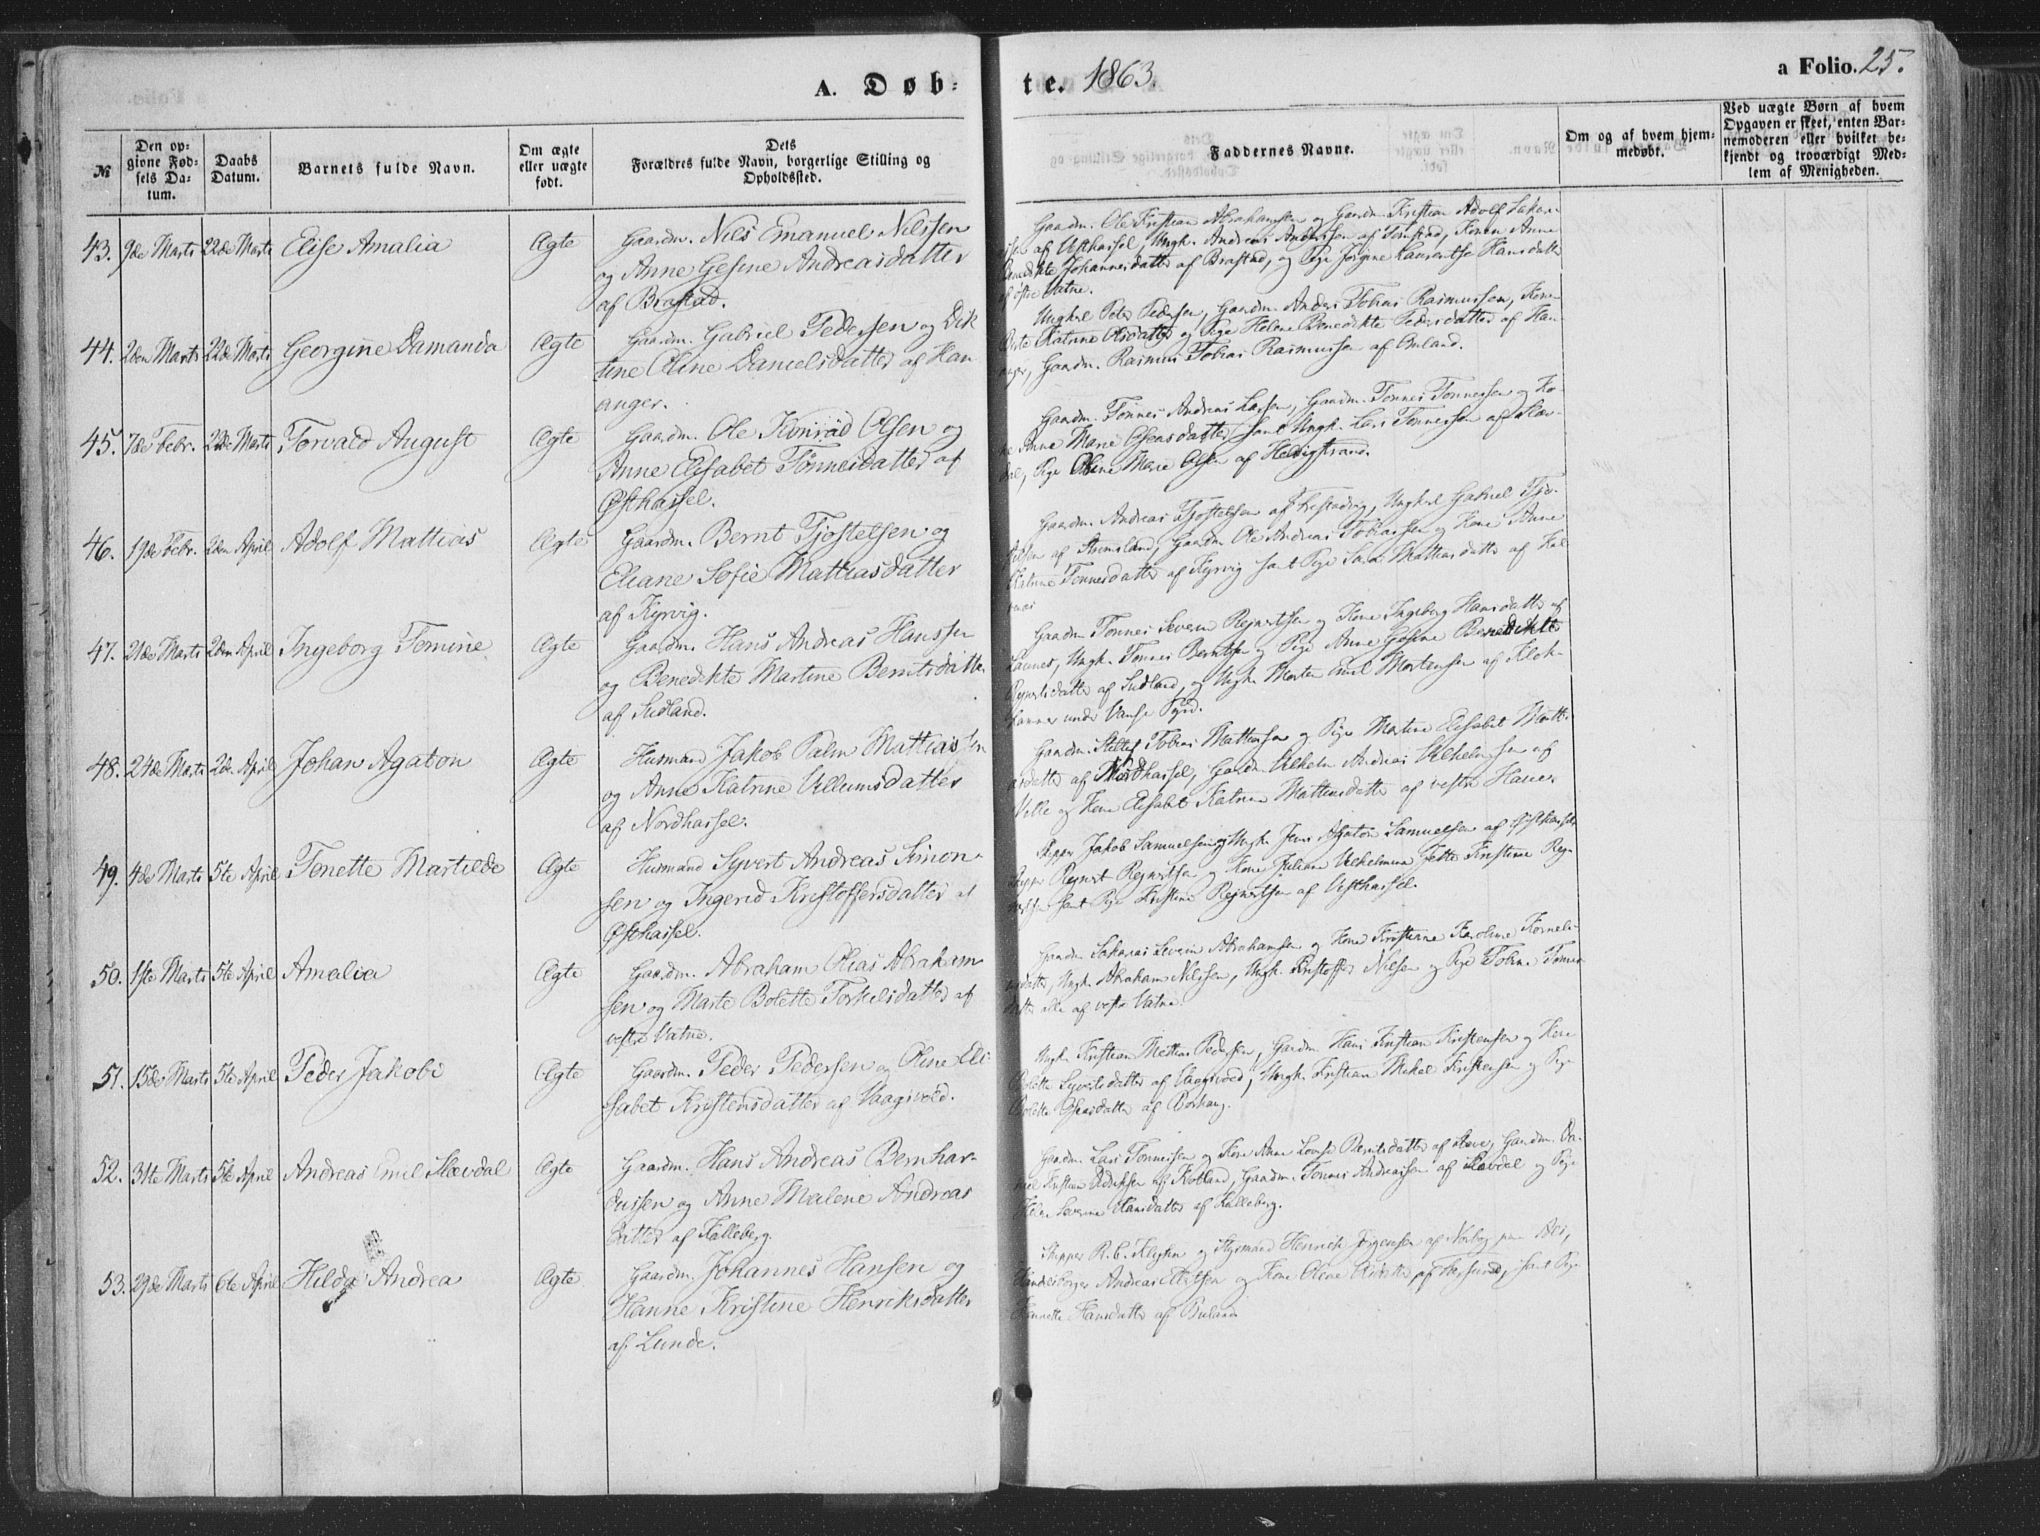 A. Døb-
te. 1863.
a Folio. 25.
№
Den op-
givne Fød-
sels Da-
tum.
Daabs
Datum.
Barnets fulde Navn.
Om ægte
eller uægte
født.
Dets
Forældres fulde Navn, borgerlige Stilling og
Opholdssted.
Faddernes Navne.
Om og af hvem hjem-
medøbt.
Ved uægte Børn af hvem
Opgaven er skeet, enten Bar-
nemoderen eller hvilket be-
kjendt og troværdigt Med-
lem af Menigheden.
43. 9de Marts 22de Marts Elise Amalia Ægte Gaardm. Nils Emanuel Nilssen
og Anne Gesine Andreasdatter
af Brastad.
Gaardm. Ole Kristian Abrahamsen og Gaardm. Kristian Adolf
af Vesthassel, Ungk. Andreas Anderssen af Konen Anne
Johannesdatter af Brastad, og Pige Jørgine Laurentse Hansdatter
af østre Vatne.
44. 2den Marts 22de Marts Georgine Damanda Ægte Gaardm. Gabriel Pedersen og Dik
tine Oline Danielsdatter af Han
anger.
Ungkarl Peder Pedersen, Gaardm. Anders Tobias Rasmussen, Kone
Berte Katrine Olsdatter og Pige Helene Benedikte Pedersdatter af Han
anger, Gaardm. Rasmus Tobias Rasmussen af Buland.
45. 7de Febr. 22de Marts Torvald August Ægte Gaardm. Ole Konrad Olsen og
Anne Elisabet Tønnesdatter af
Østhassel.
Gaardm. Tønnes Andreas Larsen, Gaardm. Tønnes Tønnessen og Ko-
ne Anne Marie Olsensdatter, samt Ungk. Lars Tønnessen af Slæv-
dal, Pige Oline Marie Olsen af Hervigstrand.
46. 19de Febr. 2den April Adolf Mattias Ægte Gaardm. Bernt Tjostelsen og
Eliane Sofie Mattiasdatter
af Kyrvig.
Gaardm. Andreas Tjostelsen af Ungkarl Gabriel Tjo-
stelsen af Gaardm. Ole Andreas Tobiassen og Kone Anne
Tønnesdatter af Kyrvig samt Pige Sara Mattiasdatter af
47. 21de Marts 2den April Ingeborg Tomine Ægte Gaardm. Hans Andreas Hanssen
og Benedikte Martine Berntsdatter
af Sudland.
Gaardm. Tønnes Severin Rejnertsen og Kone Ingeborg Hansdatter af
Launes, Ungk. Tønnes Berntsen og Pige Anne Gesine Benedikte
Rejnertsdatter af Sudland, og Ungk. Morten Emil Mortensen af Klok-
hammer under Vanse Sogn.
48. 24de Marts 2den April Johan Agaton Ægte Husmand Jakob Palm Mattiassen
og Anne Katrine Villumsdatter
af Nordhassel.
Gaardm. Tobias Mattiassen og Pige Martine Elisabet Matti-
asdatter af Nordhassel, Gaardm. Vilhelm Andreas Vilhelmsen af
Velle og Kone Elisabet Katrine Mattiasdatter af vestre
49. 4de Marts 5te April Tonette Martilde Ægte Husmand Syvert Andreas Simon-
sen og Ingerid Kristoffersdatter af
Østhassel.
Skipper Jakob Samuelsen og Ungk. Jens Agaton Samuelsen af Østhassel,
Skipper Rejnert Rejnertsen og Kone Juliane Vilhelmine Jette Kristine Rej-
nertsen samt Pige Kristine Rejnertsen af Vesthassel.
50. 1ste Marts 5te April Amalia Ægte Gaardm. Abraham Olias Abraham
sen og Marte Bolette Torkelsdatter af
vestre Vatne.
Gaardm. Sakarias Severin Abrahamsen og Kone Kristine Karoline Korneli-
usdatter, Ungk. Abraham Nilssen, Ungk. Kristoffer Nilsen og Pige Tobine Tønnes
datter alle af vestre Vatne.
51. 15de Marts 5te April Peder Jakobi Ægte Gaardm. Peder Pedersen og Oline Eli-
sabet Kristensdatter af Vaagsvold.
Ungk. Kristian Mattias Pedersen, Gaardm. Hans Kristian Kristensen og Kone
Bolette Syvertsdatter af Vaagsvold, Ungk. Kristian Mikal Kristensen og Pige
Bolette af Borhaug.
52. 31te Marts 5te April Andreas Emil Slævdal Ægte Gaardm. Hans Andreas Bernhar-
dussen og Anne Malene Andreas
datter af Kalleberg.
Gaardm. Lars Tønnessen og Kone Anne Lovise Berntsdatter af Gaardm. Da-
niel Kristian af Kolland, Gaardm. Tønnes Andreassen af Slævdal og Pige
Severine Hansdatter af Kalleberg.
53. 29de Marts 6te April Hilda Andrea Ægte. Gaardm. Johannes Hansen og
Hanne Kristine Henriksdatter
af Lunde.
Skipper R. C. og Styrmand Henrik Jørgensen af
Andreas og Kone Oline af Farsund, samt Pige
Hansdatter af Buland.